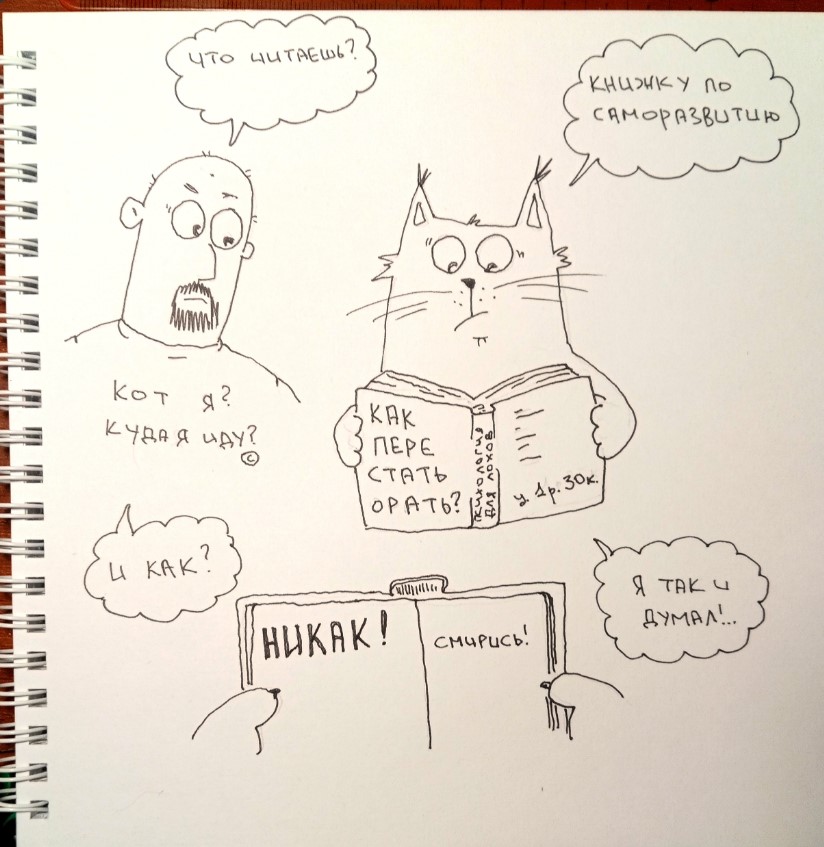 ЧТО ЧИТАЕШЬ?
КНИЖКУ ПО
САМОРАЗВИТИЮ
КОТ Я?
КУДА Я ИДУ?
©
КАК
ПЕРЕ
СТАТЬ
ОРАТЬ?
ПСИХОЛОГИЯ
ДЛЯ ЛОХОВ
ц. 1р. 30к.
И КАК?
НИКАК!
СМИРИСЬ!
Я ТАК И
ДУМАЛ!..